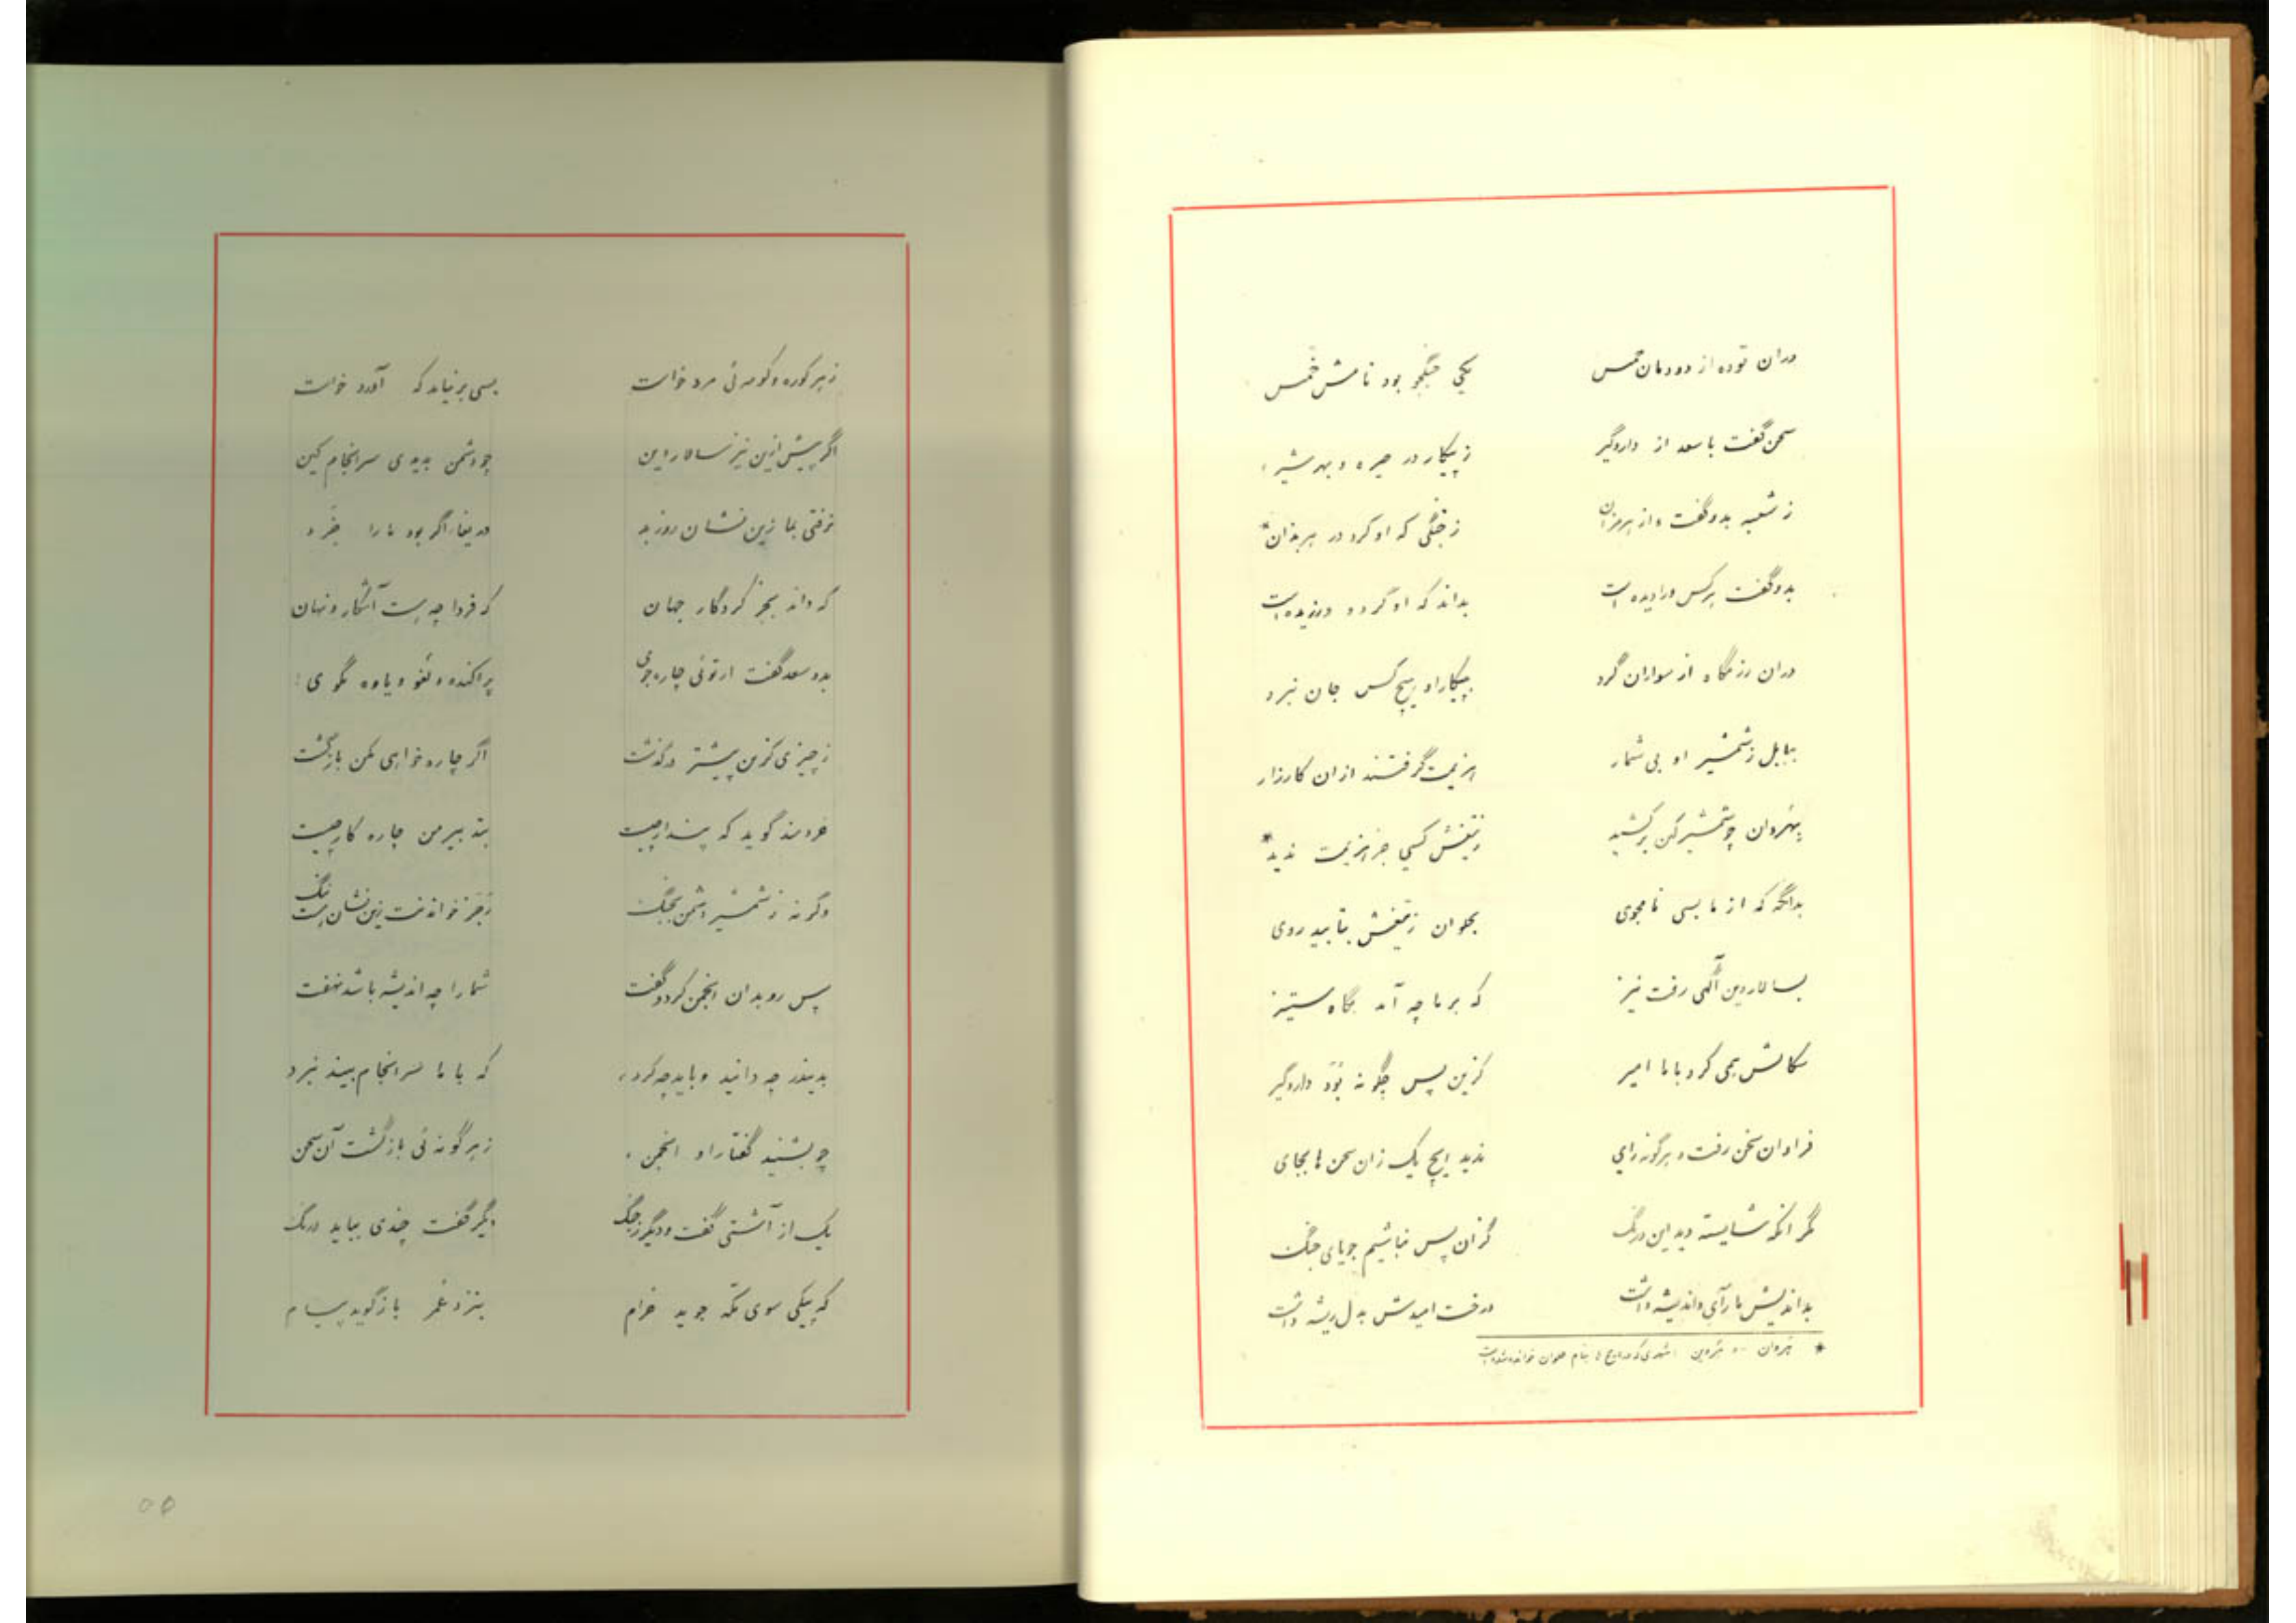 دران توده از دودمان خمس    یکی جنگجو بود نامش خمس
سخن گفت با سعد از داروگیر    ز پیکار در حیره و بهرشیر
ز شعبه بدو گفت و از هرمزان    ز جنگی که او کرد در هرمزان*
بدو گفت هرکس ورا دیده است    بداند که او گرد ورزیده است
دران رزمگاه از سواران گرد    بپیکار او هیچکس جان نبرد
ببابل ز شمشیر او بی شمار    هزیمت گرفتند ازان کارزار
بنهروان چو شمشیر کین برکشید    ز تیغش کسی جز هزیمت ندید*
بدانگه که از ما بسی نامجوی    بحلوان ز تیغش بتابید روی
بسالار دین آگهی رفت نیز    که بر ما چه آمد بگاه ستیز
سکالش همی کرد با ما امیر    کزین پس چگونه بود داروگیر
فراوان سخن رفت و هرگونه رای    ندید ایچ یک زان سخن ها بجای
مگر آنکه شایسته دید این درنگ    کزان پس نباشیم جویای جنگ
بداندیش ما رای و اندیشه داشت    درخت امیدش بدل ریشه داشت
* نهروان شهری که بنام حلوان خوانده شده است
ز هر کوره و کومه ئی مرد خواست    بسی بر نیاید که آورد خواست
اگر پیش ازین نیز سالار این    چو دشمن بدیدی سرانجام کین
نرفتی بما زین نشان روز بد    دریغا اگر بود ما را خرد
که داند بجز کردگار جهان    که فردا چه هست آشکار و نهان
بدو سعد گفت ار توئی چاره جوی    پراکنده و لغو و یاوه مگوی!
ز چیزی کزین پیشتر درگذشت    اگر چاره خواهی مکن بازگشت
خردمند گوید که پندار چیست    بتدبیر من چاره کار چیست
وگرنه ز شمشیر دشمن بجنگ    رجز خواندنت زین نشان هست ننگ
پس رو بدان انجمن کرد و گفت    شما را چه اندیشه باشد نهفت
بدیندر چه دانید و باید چه کرد    که با ما سرانجام بیند نبرد
چو بشنید گفتار او انجمن    ز هر گونه ئی بازگشت آن سخن
یک از آشتی گفت و دیگر ز جنگ    دگر گفت چندی بباید درنگ
که پیکی سوی مکه جوید خرام    بنزد عمر بازگوید پیام
۵۵